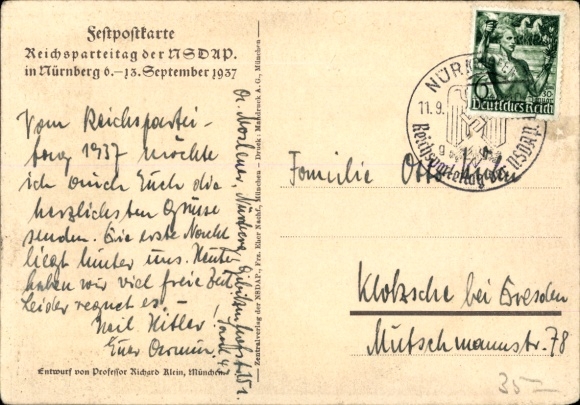 Festpostkarte
Reichsparteitag der NSDAP.
in Nürnberg 6.–13. September 1937
Vom Reichspartei-
tag 1937 möchte
ich auch Euch die
herzlichsten Grüsse
senden. Die erste Nacht
liegt hinter uns. Heute
haben wir viel freie Zeit
Leider regnet es.
Heil Hitler!
Euer
Entwurf von Professor Richard Klein, München
Zentralverlag der NSDAP., Frz. Eher Nachf., München – Druck: Mandruck A. G., München
Nürnberg
Deutsches Reich
NÜR
11.9.
Reichsparteitag der NSDAP.
Familie Otto
Klotzsche bei Dresden
Mutschmannstr. 78
35